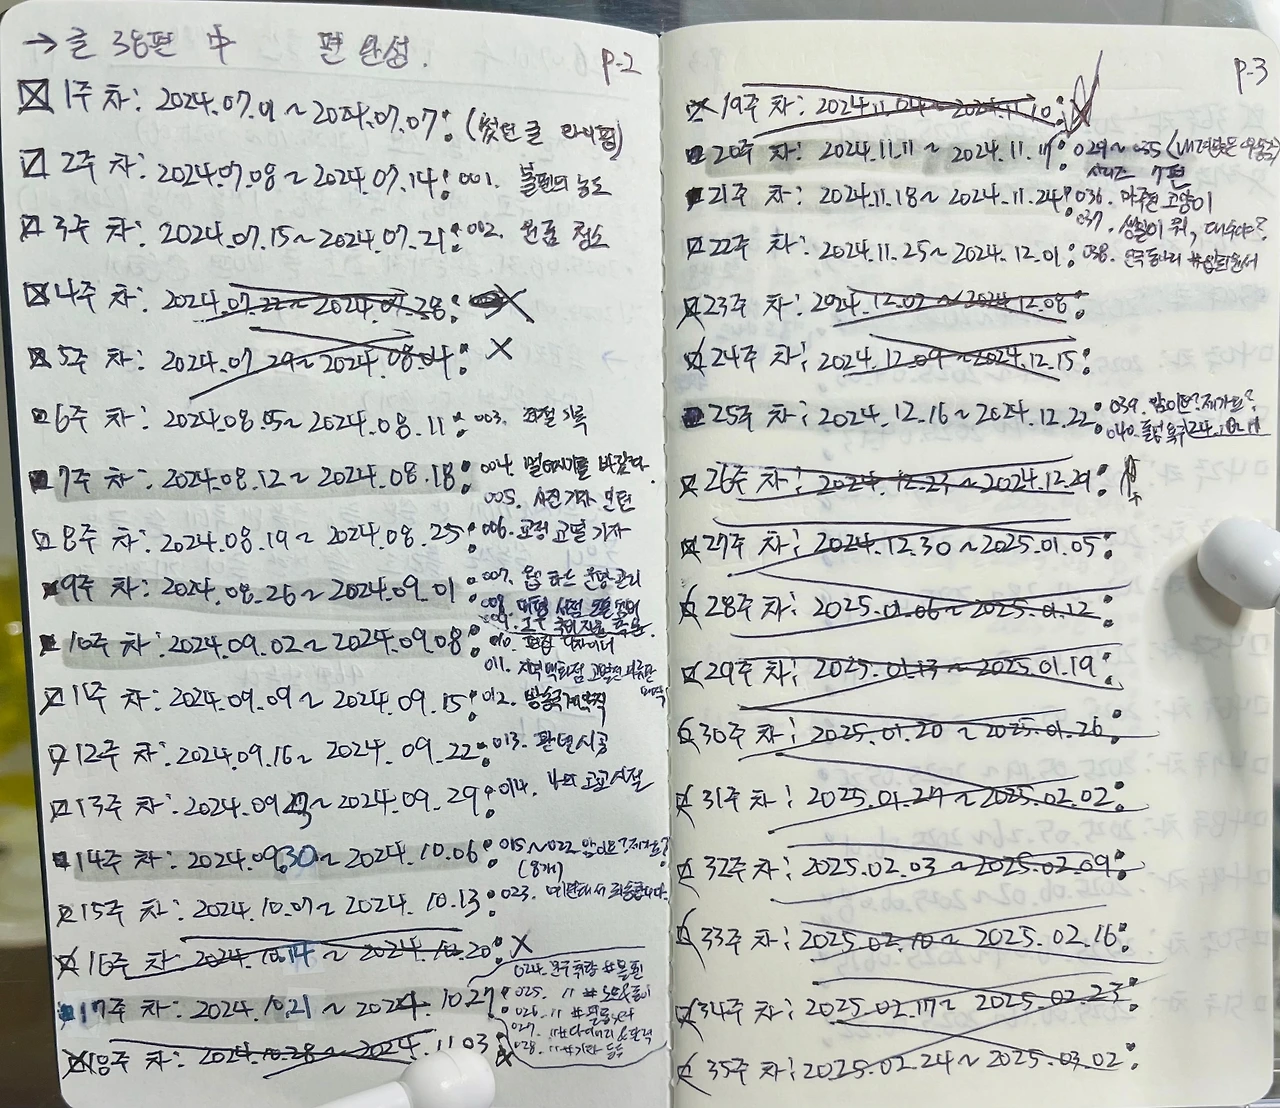 → 글 38편 中 편 완성.
P-2
1주 차: 2024.07.01 ~ 2024.07.07: (썼던 글 라이핑)
2주 차: 2024.07.08 ~ 2024.07.14: 001. 볼펜의 농도
3주 차: 2024.07.15 ~ 2024.07.21: 002. 청소
4주 차: 2024.07.22 ~ 2024.07.28: X
5주 차: 2024.07.29 ~ 2024.08.04: X
6주 차: 2024.08.05 ~ 2024.08.11: 003. 기록
7주 차: 2024.08.12 ~ 2024.08.18: 004. 바랐다.
005. 사진 기자
8주 차: 2024.08.19 ~ 2024.08.25: 006. 교정 교열 기자
9주 차: 2024.08.26 ~ 2024.09.01: 007. 운영 관리
008.
009.
10주 차: 2024.09.02 ~ 2024.09.08: 010. 편집 디자이너
011. 지역 백화점
11주 차: 2024.09.09 ~ 2024.09.15: 012. 방송국 계약직
12주 차: 2024.09.16 ~ 2024.09.22: 013. 판넬 시공
13주 차: 2024.09.23 ~ 2024.09.29: 014. 나의 고교 시절
14주 차: 2024.09.30 ~ 2024.10.06: 015 ~ 022. 암이요? 제가요?
(8개)
15주 차: 2024.10.07 ~ 2024.10.13: 023.
16주 차: 2024.10.14 ~ 2024.10.20: X
17주 차: 2024.10.21 ~ 2024.10.27:
024. 문구 취향 #볼펜
025. 〃 #노트&종이
026. 〃 #
027. 〃 #다이어리&달력
028. 〃 #기타 등등
18주 차: 2024.10.28 ~ 2024.11.03 X
P-3
19주 차: 2024.11.04 ~ 2024.11.10:
20주 차: 2024.11.11 ~ 2024.11.17: 029 ~ 035 (내
시리즈 7편
21주 차: 2024.11.18 ~ 2024.11.24: 036. 마주친 고양이
037. 쌍쌀이 뭐, 대수야?
22주 차: 2024.11.25 ~ 2024.12.01: 038.
23주 차: 2024.12.02 ~ 2024.12.08:
24주 차: 2024.12.09 ~ 2024.12.15:
25주 차: 2024.12.16 ~ 2024.12.22: 039. 암이요? 제가요?
040.
26주 차: 2024.12.23 ~ 2024.12.29:
27주 차: 2024.12.30 ~ 2025.01.05:
28주 차: 2025.01.06 ~ 2025.01.12:
29주 차: 2025.01.13 ~ 2025.01.19:
30주 차: 2025.01.20 ~ 2025.01.26:
31주 차: 2025.01.27 ~ 2025.02.02:
32주 차: 2025.02.03 ~ 2025.02.09:
33주 차: 2025.02.10 ~ 2025.02.16:
34주 차: 2025.02.17 ~ 2025.02.23:
35주 차: 2025.02.24 ~ 2025.03.02: